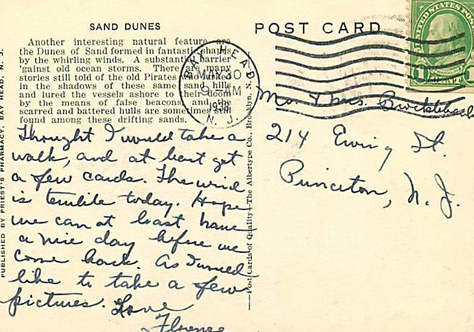 SAND DUNES
Another interesting natural feature are
the Dunes of Sand formed in fantastic shapes
by the whirling winds. A substantial barrier
'gainst old ocean storms. There are many
stories still told of the old Pirates who
in the shadows of these same sand hills
and lured the vessels ashore to their doom
by the means of false beacons and the
scarred and battered hulls are sometimes still
found among these drifting sands.
Thought I would take a
walk, and at best get
a few cards. The wind
is terrible today. Hope
we can at least have
a nice day before we
come back. As I would
like to take a few
pictures. Love
Florence
PUBLISHED BY PRIEST'S PHARMACY, BAY HEAD, N. J.
Post Cards of Quality—The Albertype Co., Brooklyn, N. Y.
POST CARD
BAY HEAD
MAY 30
M
N.J.
UNITED STATES
1
Mr & Mrs.
214 Ewing St.
Princeton, N. J.